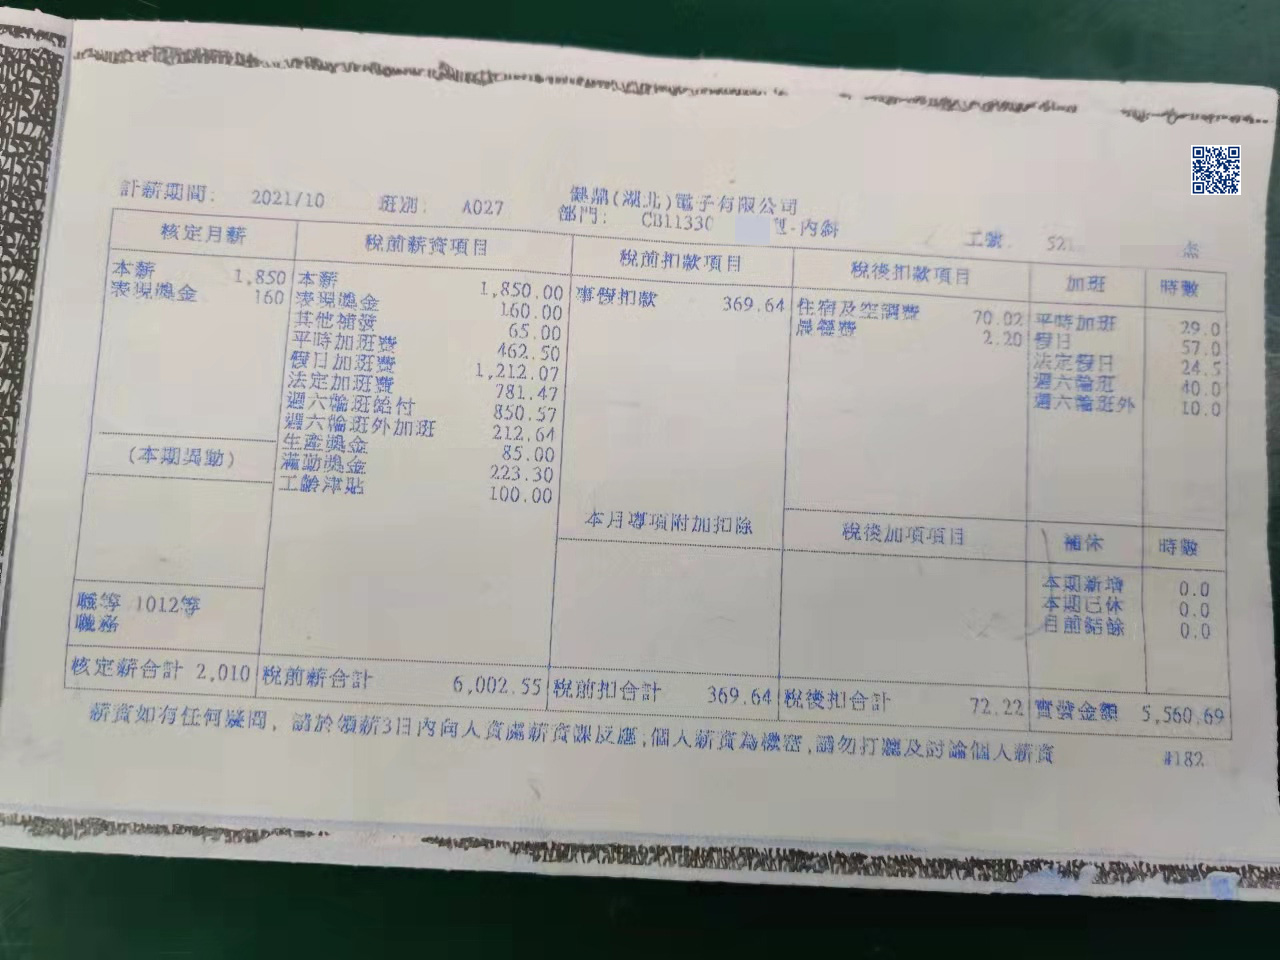 計薪期間: 2021/10 班別: A027 健鼎(湖北)電子有限公司
部門: CB11330 班-內斜 工號 52 杰
核定月薪 稅前薪資項目 稅前扣款項目 稅後扣款項目 加班 時數
本薪 1,850 本薪 1,850.00 事假扣款 369.64 住宿及空調費 70.02 平時加班 29.0
表現獎金 160 表現獎金 160.00 晨餐費 2.20 假日 57.0
其他補發 65.00 法定假日 24.5
平時加班費 462.50 週六輪班 40.0
假日加班費 1,212.07 週六輪班外 10.0
法定加班費 781.47
週六輪班給付 850.57
週六輪班外加班 212.64
生產獎金 85.00
(本期異動) 滿勤獎金 223.30
工齡津貼 100.00
本月專項附加扣除 稅後加項項目 補休 時數
本期新增 0.0
職等 1012等 本期已休 0.0
職務 目前結餘 0.0
核定薪合計 2,010 稅前薪合計 6,002.55 稅前扣合計 369.64 稅後扣合計 72.22 實發金額 5,560.69
薪資如有任何疑問, 請於領薪3日內向人資處薪資課反應,個人薪資為機密,請勿打聽及討論個人薪資 #182